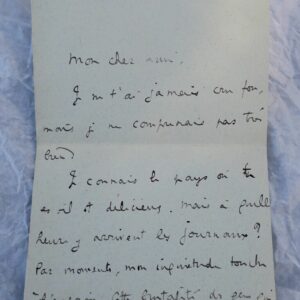 Mon cher ami,
Je ne t'ai jamais cru fou,
mais je ne comprenais pas très
bien.
Je connais le pays où tu
es il est délicieux. Mais à quelle
heure y arrivent les journaux ?
Par moments, mon inquiétude touche
Cette brutalité de